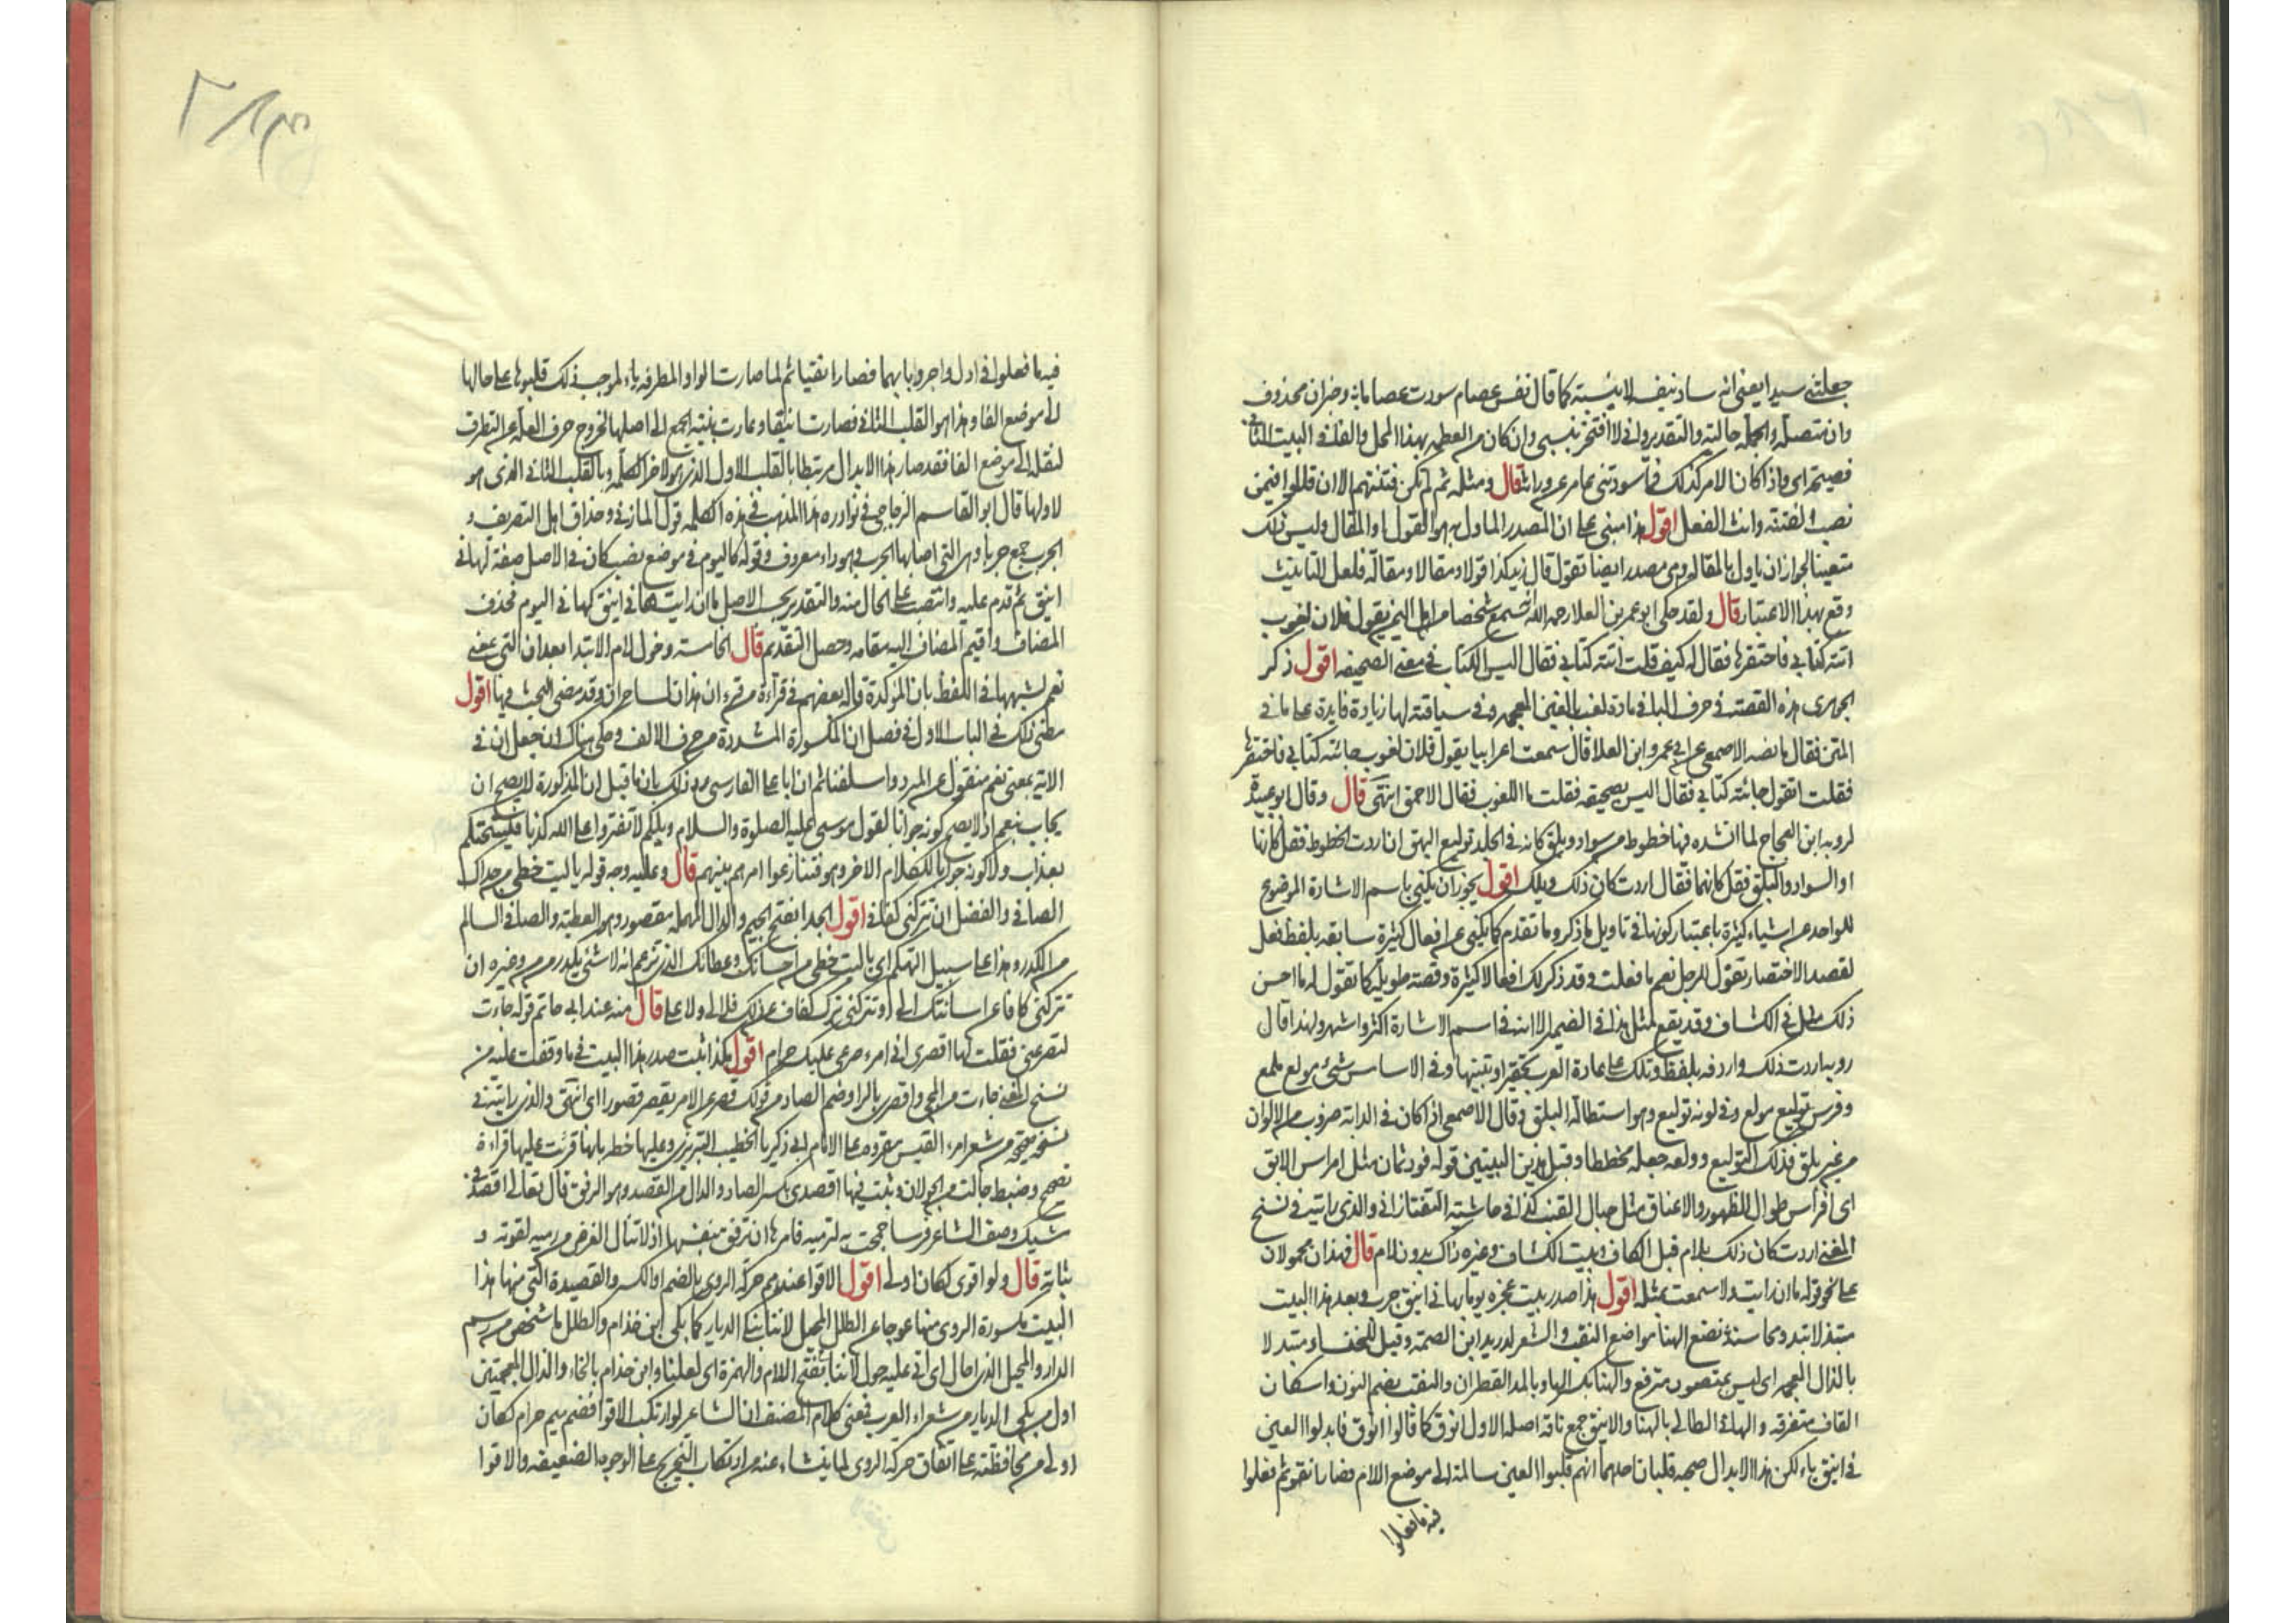 جعلتني سيدا يعني انه ساد بنفسه لا بنسبته كما قال نفس عصام سودت عصاما وخبران محذوف
وان متصلة والجملة حالية والتقدير واني لا افتخر بنسبي وان كان من العظمة بهذا المحل والفاء في البيت الثاني
فصيحة اي واذا كان الامر كذلك فما سودتني عامر عن وراثة قال ومثله ثم لم تكن فتنتهم الا ان قالوا فيمن
نصب الفتنة وانث الفعل اقول هذا مبني على ان المصدر الماول به هو القول او المقال وليس ذلك
متعينا لجواز ان ياول بالمقالة وهي مصدر ايضا تقول قال زيد كذا قولا ومقالا ومقالة فلعل التانيث
وقع بهذا الاعتبار قال ولقد حكى ابو عمر بن العلا رحمه الله انه سمع شخصا من اهل اليمن يقول فلان لغوب
اتته كتابي فاحتقرها فقال له كيف قلت اتته كتابي فقال اليس الكتاب في معنى الصحيفه اقول ذكر
الجوهري هذه القصة في حرف البا في مادة لغب بالغين المعجمة وفي سياقته لها زيادة فايدة على ما في
المتن فقال ما نصه الاصمعي عن ابي عمرو ابن العلا قال سمعت اعرابيا يقول فلان لغوب جائته كتابي فاحتقرها
فقلت اتقول جائته كتابي فقال اليس بصحيفه فقلت ما اللغوب فقال الاحمق انتهى قال وقال ابو عبيدة
لروبه ابن العجاج لما انشده فيها خطوط من سواد وبلق كانه في الجلد توليع البهق ان اردت الخطوط فقل كانها
او السواد والبلق فقل كانهما فقال اردت كان ذلك ويلك اقول يجوز ان يكنى باسم الاشارة الموضوع
للواحد عن اشياء كثيرة باعتبار كونها في تاويل ما ذكر وما تقدم كما يكنى عن افعال كثيرة سابقه بلفظ فعل
لقصد الاختصار تقول للرجل نعم ما فعلت وقد ذكر لك افعالا كثيرة وقصة طويلة كما تقول له ما احسن
ذلك في الكشاف وقد يقع مثل هذا في الضمير الا انه في اسم الاشارة اكثر واشهر ولهذا قال
روبه اردت ذلك وارد فه بلفظ وتلك على عادة العرب وفي الاساس شيء مولع ملمع
وفرس توليع مولع وفي لونه توليع وهو استطالة البلق وقال الاصمعي اذا كان في الدابة ضروب من الالوان
من غير بلق فذلك التوليع وولعه جعله مخططا وقبل هذين البيتين قوله قود ثمان مثل امراس الابق
اي افراس طوال الظهور والاعناق مثل حبال القنب كذا في حاشية التفتازاني والذي رايت في نسخ
المغني اردت كان ذلك بلام قبل الكاف وبيت الكشاف وغيره ذاك بدون لام قال فهذان محمولان
على نحو قوله ما ان رايت ولا سمعت بمثله اقول هذا صدر بيت عجزه يوما بها ني اينق جرب وبعد هذا البيت
متبذلا تبدو محاسنه يضع الهنا مواضع النقب والشعر لدريد ابن الصمة وقيل للخنساء ومتبذلا
بالذال المعجمة اي ليس بمتصون مترفع والهنا بكسر الهاء وبالمد القطران والنقب بضم النون واسكان
القاف متفرقه والهاني الطالي بالهنا والاينق جمع ناقة اصله الاول انوق كما قالوا انوق فابدلوا العين
في اينق ياء لكن هذا الابدال صحبه قلبان احدهما انهم قلبوا العين سالمة الى موضع اللام فصار انقو ثم فعلوا
فيه ما فعلوا
فيه ما فعلوا في ادل واجر وبابهما فصار انقيا ثم لما صارت الواو المطرفه ياء لموجب ذلك قلبوها على حالها
الى موضع الفا وهذا هو القلب الثاني فصارت اينقا وعادت بنية الجمع الى اصلها لخروج حرف العلة عن التطرف
لنقله الى موضع الفا فقد صار هذا الابدال مرتبطا بالقلب الاول الذي هو لاخر الكلمة وبالقلب الثاني الذي هو
لاولها قال ابو القاسم الزجاجي في نوادره هذا المذهب في هذه الكلمه قول المازني وحذاق اهل التصريف و
الجرب جمع جرباء وهي التي اصابها الجرب وهو داء معروف وقوله كاليوم في موضع نصب كان في الاصل صفة لهاني
اينق ثم قدم عليه وانتصب على الحال منه والتقدير بحسب الاصل ما ان رايت هاني اينق كهاني اليوم فحذف
المضاف واقيم المضاف اليه مقامه وحصل التقديم قال الخامسة دخول لام الابتدا بعد ان التي بمعنى
نعم لشبهها في اللفظ بان الموكدة قاله بعضهم في قراءة من قرء ان هذان لساحران وقد مضى البحث فيها اقول
مضى ذلك في الباب الاول في فصل ان المكسورة المشددة من حرف الالف وحكى هناك ان جعل ان في
الاية بمعنى نعم منقول عن المبرد واسلفنا ثم ان ابا علي الفارسي رد ذلك بان ما قبل ان المذكورة لا يصح ان
يجاب بنعم اذ لا يصح كونه جوابا لقول موسى عليه الصلوة والسلام ويلكم لا تفتروا على الله كذبا فيسحتكم
بعذاب ولا كونه جوابا للكلام الاخر وهو فتنازعوا امرهم بينهم قال وعليه وجه قوله يا ليت حظي من جداك
الصافي والفضل ان تتركني كفاف اقول الجدا بفتح الجيم والدال المهملة مقصور وهو العطية والصافي السالم
من الكدر وهذا على سبيل التهكم اي يا ليت حظي من احسانك وعطائك الذي تزعم انه لا شيء يكدره من من وغيره ان
تتركني كافا عن اسائتك الي او تتركني ترك كفاف عن ذلك فلا لي ولا علي قال منه عند ابي حاتم قوله جاءت
لتصرعني فقلت لها اقصري اني امرء صرعي عليك حرام اقول هكذا ثبت صدر هذا البيت في ما وقفت عليه من
نسخ المغني جاءت من المجي واقصري بالراء وضم الصاد من قولك قصر عن الامر يقصر قصورا اي انتهى والذي رايته في
نسخة صحيحة من شعر امرء القيس مقروءة على الامام ابي زكريا الخطيب التبريزي وعليها خطه بانها قرئت عليه قراءة
تصحيح وضبط جالت من الجولان وثبت فيها اقصدي بكسر الصاد والدال من القصد وهو الرفق قال تعالى اقصد في
مشيك وصف الشاعر فرسا جمحت به لترميه فامرها ان ترفق بنفسها اذ لا تنال الغرض من رميه لقوته و
ثباته قال ولو اقوى لكان اولى اقول الاقوا عندهم حركة الروي بالضم او الكسر والقصيدة التي منها هذا
البيت مكسورة الروي منها عوجا على الطلل المحيل لاننا نبكي الديار كما بكى ابن خذام والطلل ما شخص من رسم
الدار والمحيل الذي احال اي اتى عليه حول لاننا بفتح اللام والهمزة اي لعلنا وابن خذام بالخاء والذال المعجمتين
اول من بكى الديار من شعراء العرب فمعنى كلام المصنف ان الشاعر لو ارتكب الاقوا فضم ميم حرام لكان
اولى من محافظته على اتفاق حركة الروي لما ينشاء عنه من ارتكاب التخريج على الوجوه الضعيفه والاقوا